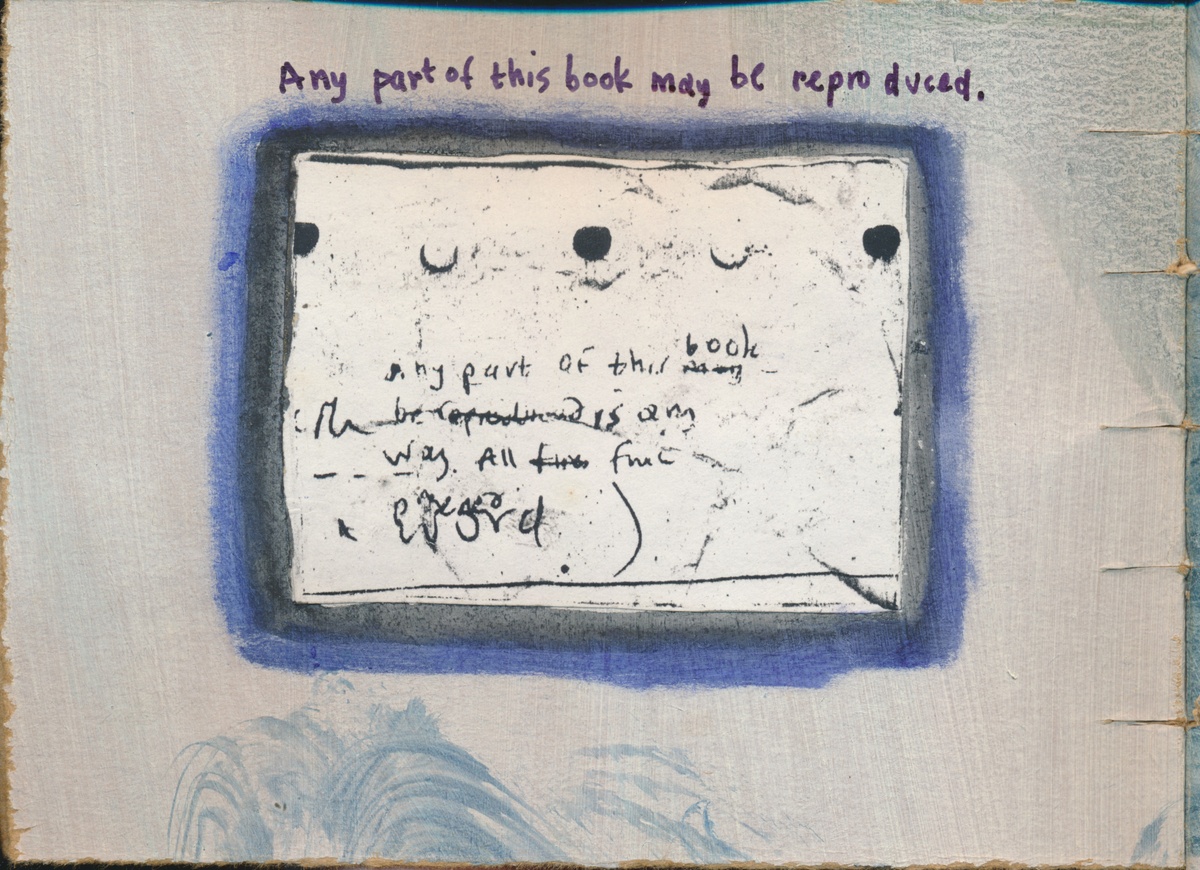 Any part of this book may be reproduced.
book
Any part of this may
be reproduced is any
way. All